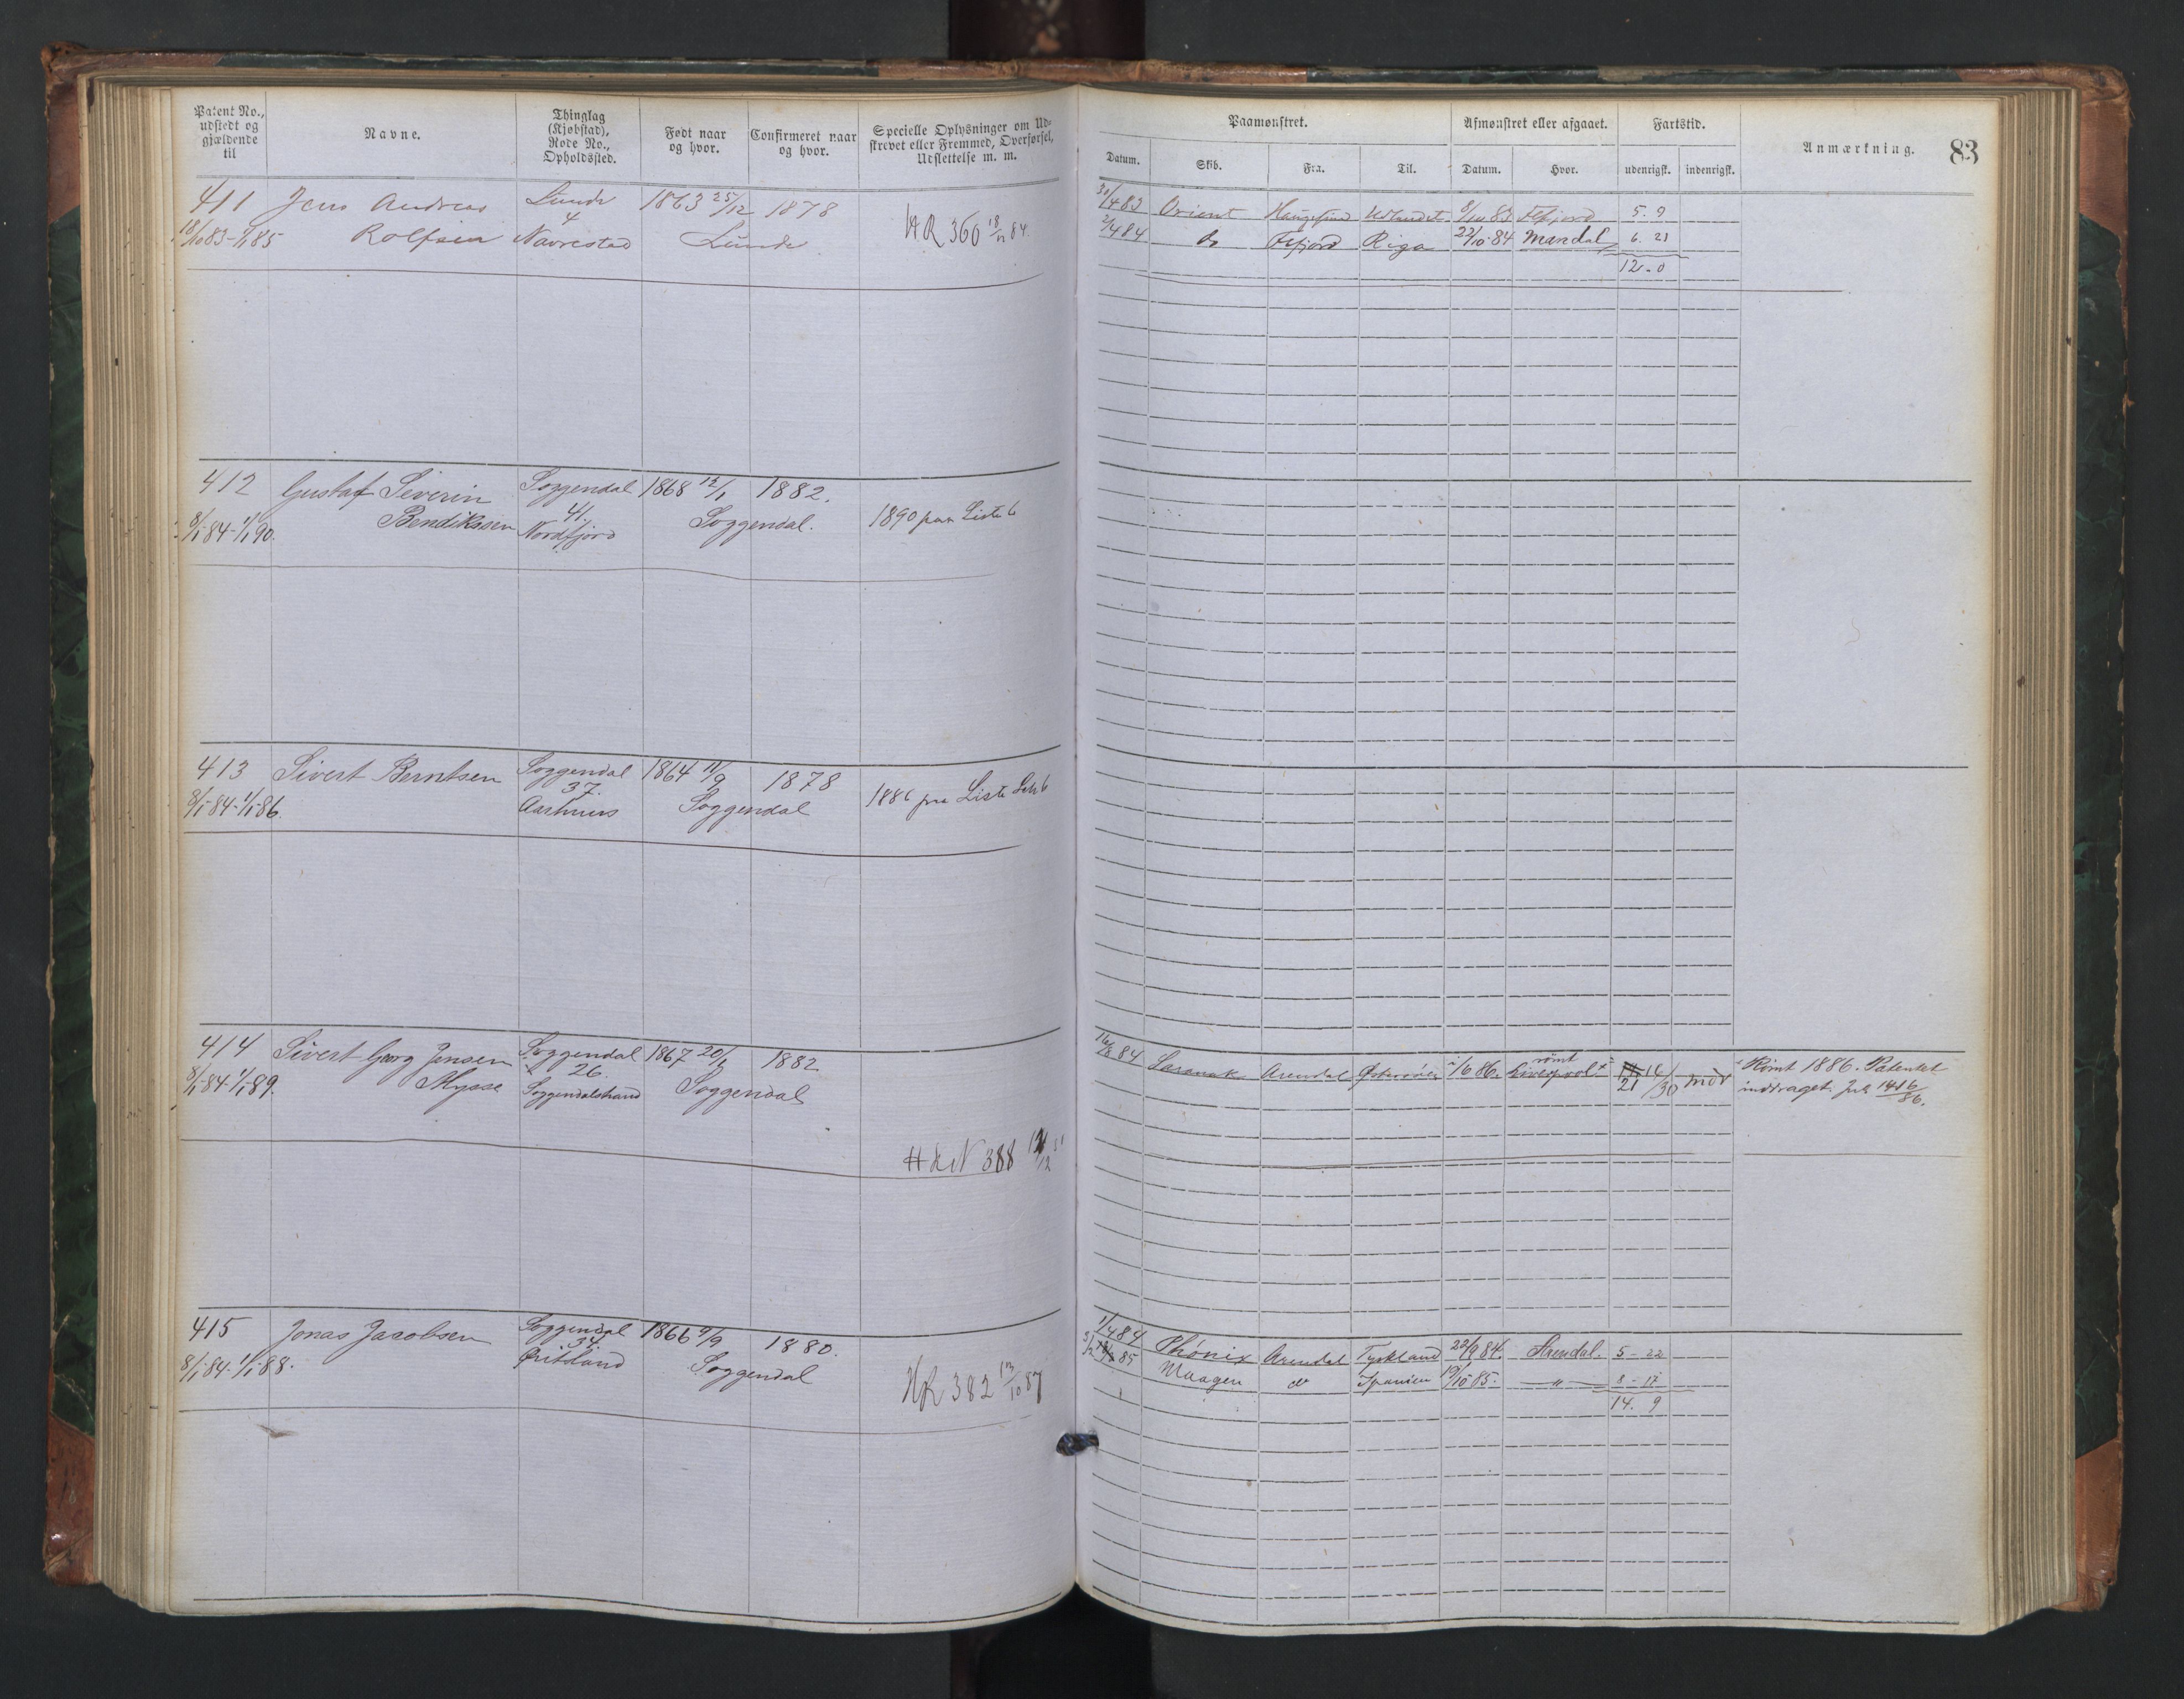 Patent No., udstedt og gjældende til
Navne.
Thinglag (Kjøbstad), Rode No., Opholdssted.
Født naar og hvor.
Confirmeret naar og hvor.
Specielle Oplysninger om Udskrevet eller Fremmed, Overførsel, Udslettelse m. m.
Paamønstret.
Afmønstret eller afgaaet.
Fartstid.
Anmærkning.
83
Datum.
Skib.
Fra.
Til.
Datum.
Hvor.
udenrigsk.
indenrigsk.
411 Jens Andreas Lunde 1863 25/12 1878
18/10 83-1/1 85 Rolfsen 4 Navrestad Lunde
HR 360 18/11 84
30/4 83 Orient Udlandet 8/10 83 5. 9
2/4 84 Do Riga 22/10 84 Mandal 6. 21
12. 0
412 Gustaf Severin Soggendal 1868 12/1 1882.
8/1 84-1/1 90. Bendiksen 41. Nordfjord Soggendal.
1890 paa Liste 6
413 Sivert Berntsen Soggendal 1864 11/9 1878
8/1 84-1/1 86. 37. Aarhuus Soggendal
1886 paa Liste
414 Sivert Georg Jensen Soggendal 1867 20/1 1882
8/1 84-1/1 89. Mysse 26. Soggendalstrand Soggendal
388
16/8 84 Saranak Arendal 1/6 86. rømt Liverpool 21 16/30 mdr
Rømt 1886. Patentet
inddraget. Jnl 1416/86.
415 Jonas Jacobsen Soggendal 1866 9/9 1880.
8/1 84-1/1 88. 34 Øritsland Soggendal
HR 382 13/10 87
1/4 84 Phønix Arendal Tyskland 22/9 84. Arendal. 5-22
85 Maagen do Spanien 19/10 85. " 8-17
14. 9